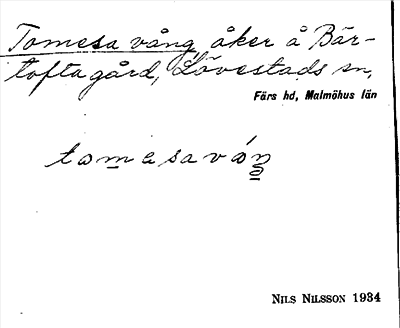 Tomesa vång, åker å Bär-
tofta gård, Lövestads sn,
Färs hd, Malmöhus län
tomesavón
NILS NILSSON 1934